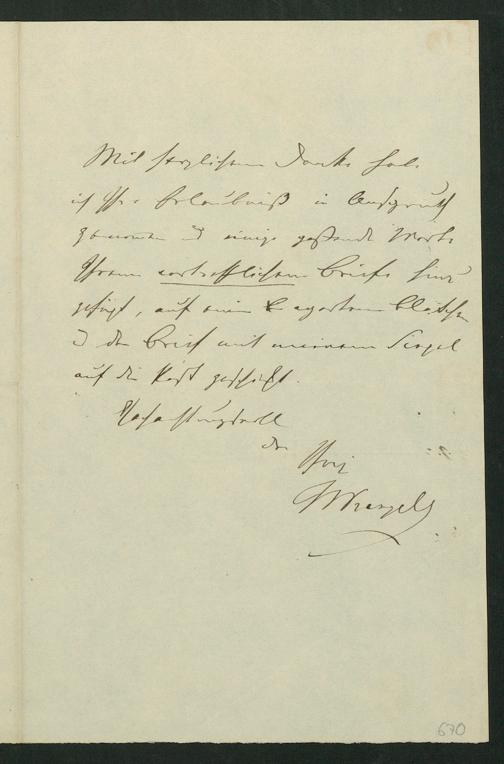 Mit herzlichem Danke habe
ich Ihre Erlaubniß in Anspruch
genommen & einige passende Worte
Ihrem vortrefflichen Briefe hinzu
gefügt, auf ein apartem Blättchen
& den Brief mit meinem Siegel
auf die Post geschickt.
Hochachtungsvoll
der
Ihrige
Wrangel
670